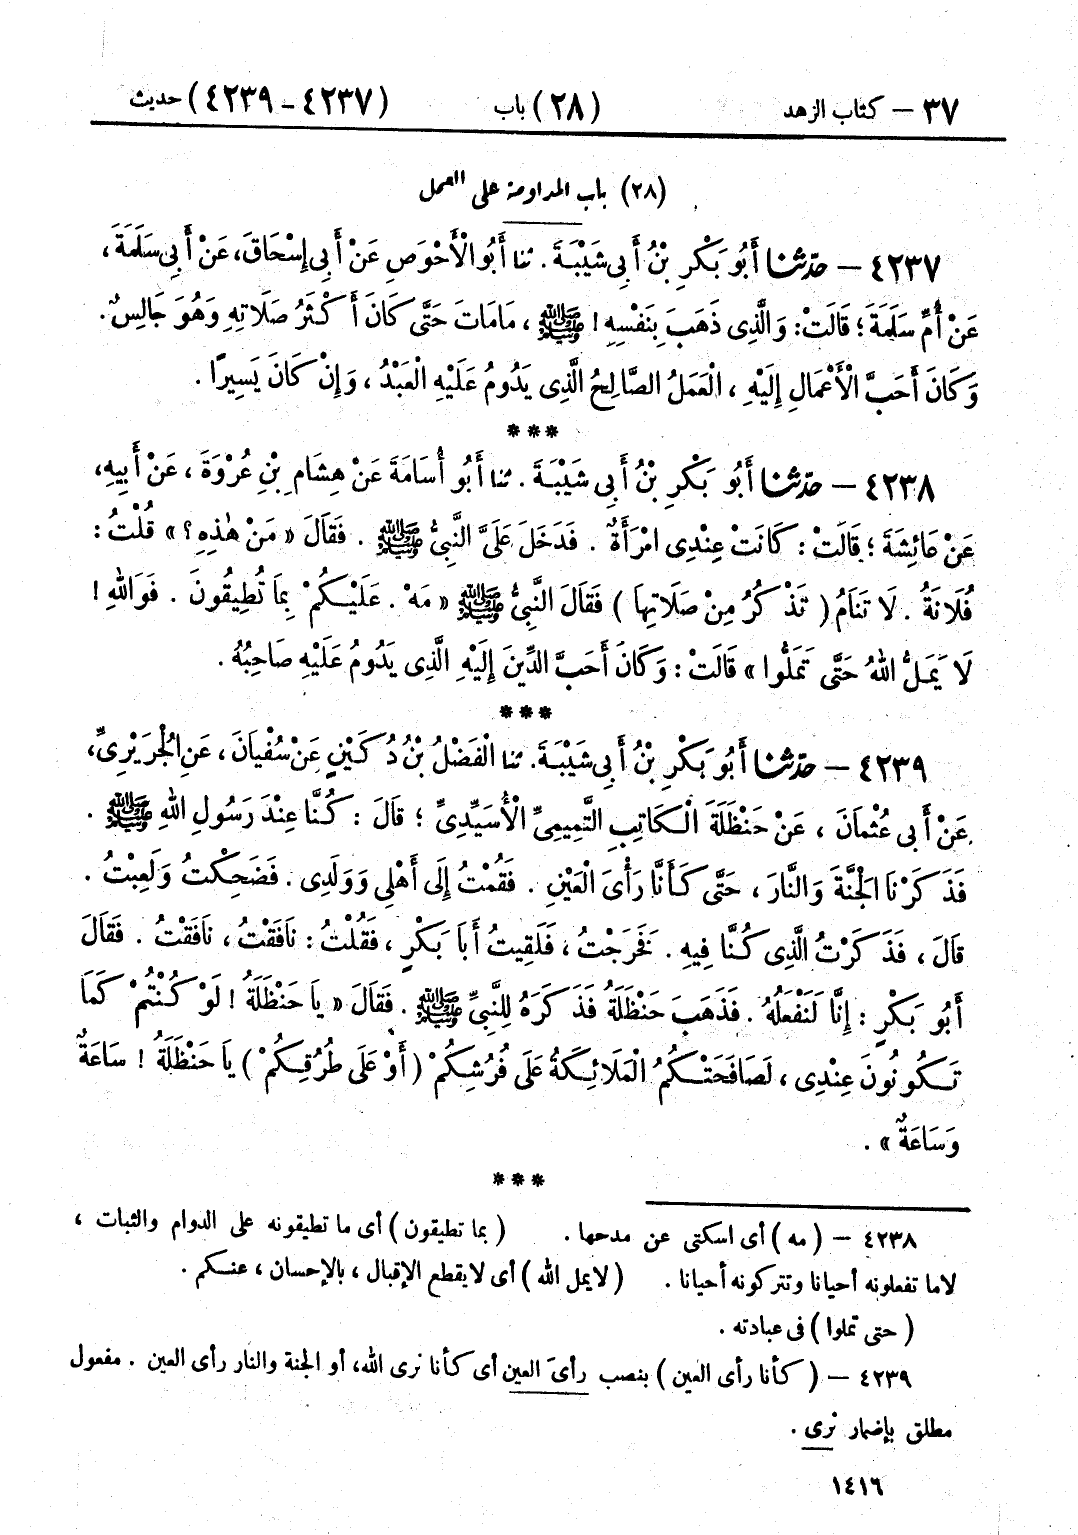 ٣٧ – كتاب الزهد (٢٨) باب (٤٢٣٧ – ٤٢٣٩) حديث
(٢٨) باب المداومة على العمل
٤٢٣٧ – حدّثنا أَبُو بَكْرِ بْنُ أَبِي شَيْبَةَ . ثنا أَبُو الْأَحْوَصِ عَنْ أَبِي إِسْحَاقَ، عَنْ أَبِي سَلَمَةَ ،
عَنْ أُمِّ سَلَمَةَ ؛ قَالَتْ: وَالَّذِى ذَهَبَ بِنَفْسِهِ ! ﷺ ، مَامَاتَ حَتَّى كَانَ أَكْثَرُ صَلَاتِهِ وَهُوَ جَالِسٌ.
وَكَانَ أَحَبَّ الْأَعْمَالِ إِلَيْهِ ، الْعَمَلُ الصَّالِحُ الَّذِى يَدُومُ عَلَيْهِ الْعَبْدُ ، وَإِنْ كَانَ يَسِيرًا .
***
٤٢٣٨ – حدّثنا أَبُو بَكْرِ بْنُ أَبِي شَيْبَةَ . ثنا أَبُو أُسَامَةَ عَنْ هِشَامِ بْنِ عُرْوَةَ ، عَنْ أَبِيهِ،
عَنْ عَائِشَةَ ؛ قَالَتْ : كَانَتْ عِنْدِى امْرَأَةٌ . فَدَخَلَ عَلَىَّ النَّبِىُّ ﷺ . فَقَالَ « مَنْ هٰذِهِ ؟ » قُلْتُ :
فُلَانَةُ . لَا تَنَامُ ( تَذْكُرُ مِنْ صَلَاتِهَا ) فَقَالَ النَّبِىُّ ﷺ « مَهْ . عَلَيْكُمْ بِمَا تُطِيقُونَ . فَوَاللهِ !
لَا يَمَلُّ اللهُ حَتَّى تَمَلُّوا » قَالَتْ : وَكَانَ أَحَبَّ الدِّينَ إِلَيْهِ الَّذِى يَدُومُ عَلَيْهِ صَاحِبُهُ .
***
٤٢٣٩ – حدّثنا أَبُو بَكْرِ بْنُ أَبِي شَيْبَةَ. ثنا الْفَضْلُ بْنُ دُكَيْنٍ عَنْ سُفْيَانَ، عَنِ الْجُرَيْرِىِّ،
عَنْ أَبِي عُثْمَانَ ، عَنْ حَنْظَلَةَ الْكَاتِبِ التَّمِيمِىِّ الْأُسَيِّدِىِّ ؛ قَالَ : كُنَّا عِنْدَ رَسُولِ اللهِ ﷺ .
فَذَكَرْنَا الْجَنَّةَ وَالنَّارَ ، حَتَّى كَأَنَّا رَأْىَ الْعَيْنِ . فَقُمْتُ إِلَى أَهْلِى وَوَلَدِى . فَضَحِكْتُ وَلَعِبْتُ .
قَالَ ، فَذَكَرْتُ الَّذِى كُنَّا فِيهِ . فَخَرَجْتُ ، فَلَقِيتُ أَبَا بَكْرٍ ، فَقُلْتُ : نَافَقْتُ ، نَافَقْتُ . فَقَالَ
أَبُو بَكْرٍ : إِنَّا لَنَفْعَلُهُ . فَذَهَبَ حَنْظَلَةُ فَذَكَرَهُ لِلنَّبِىِّ ﷺ . فَقَالَ « يَا حَنْظَلَةُ ! لَوْ كُنْتُمْ كَمَا
تَكُونُونَ عِنْدِى ، لَصَافَحَتْكُمُ الْمَلَائِكَةُ عَلَى فُرُشِكُمْ ( أَوْ عَلَى طُرُقِكُمْ ) يَا حَنْظَلَةُ ! سَاعَةٌ
وَسَاعَةٌ » .
***
٤٢٣٨ – ( مه ) أى اسكتى عن مدحها . ( بما تطيقون ) أى ما تطيقونه على الدوام والثبات ،
لاما تفعلونه أحيانا وتتركونه أحيانا . ( لايمل الله ) أى لايقطع الإقبال ، بالإحسان ، عنكم .
( حتى تملوا ) فى عبادته .
٤٢٣٩ – ( كأنا رأى العين ) بنصب رأىَ العين أى كأنا نرى الله، أو الجنة والنار رأى العين . مفعول
مطلق بإضمار نرى .
١٤١٦